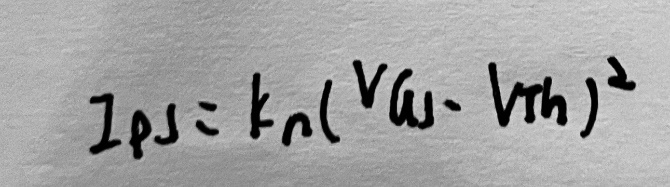 I_DS = k_n(V_GS - V_Th)^2